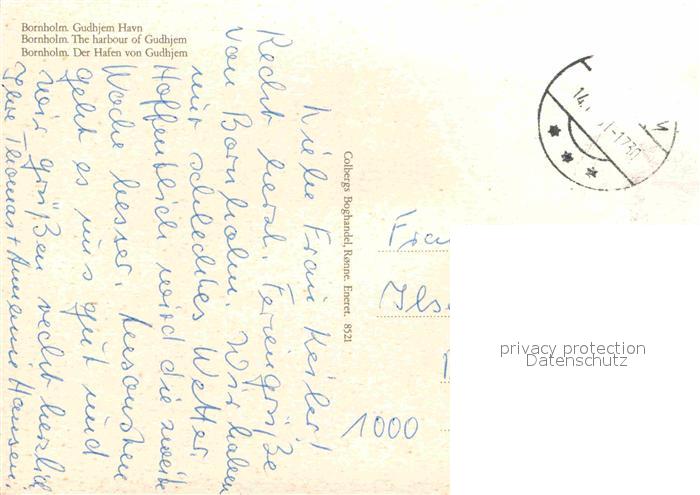 Bornholm. Gudhjem Havn
Bornholm. The harbour of Gudhjem
Bornholm. Der Hafen von Gudhjem
Liebe Frau Keiler!
Recht herzl. Feriengrüße
von Bornholm. Wir haben
nur schlechtes Wetter.
Hoffentlich wird die zweite
Woche besser. Ansonsten
geht es uns gut und
wir grüßen recht herzlich
Ihre Thomas + Annemie Hansen.
Colbergs Boghandel, Rønne. Eneret. 8521
14.
-17.30
Frau
Ilse
1000
privacy protection
Datenschutz